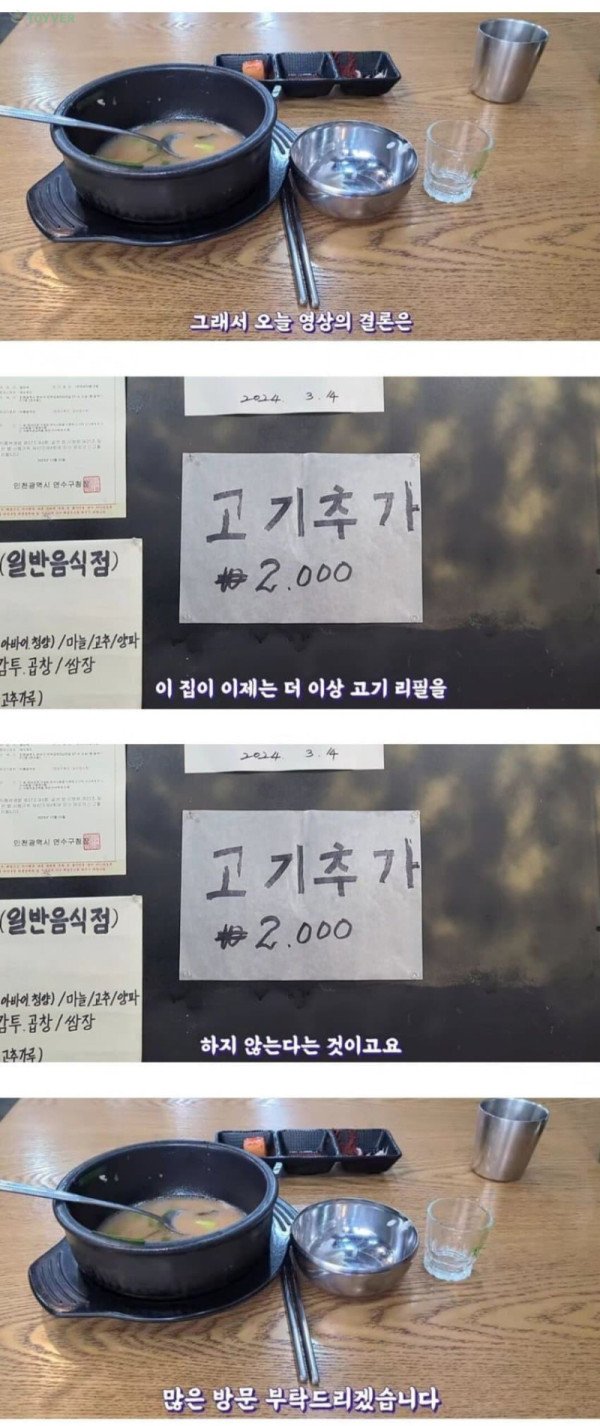 TOYVER
그래서 오늘 영상의 결론은
2024. 3. 14
인천광역시 연수구청장
고기추가
₩2.000
(일반음식점)
아바이.청양) /마늘/고추/양파
감투.곱창/쌈장
고추가루)
이 집이 이제는 더 이상 고기 리필을
2024. 3. 14
인천광역시 연수구청장
고기추가
₩2.000
(일반음식점)
아바이.청양) /마늘/고추/양파
감투.곱창/쌈장
고추가루)
하지 않는다는 것이고요
많은 방문 부탁드리겠습니다